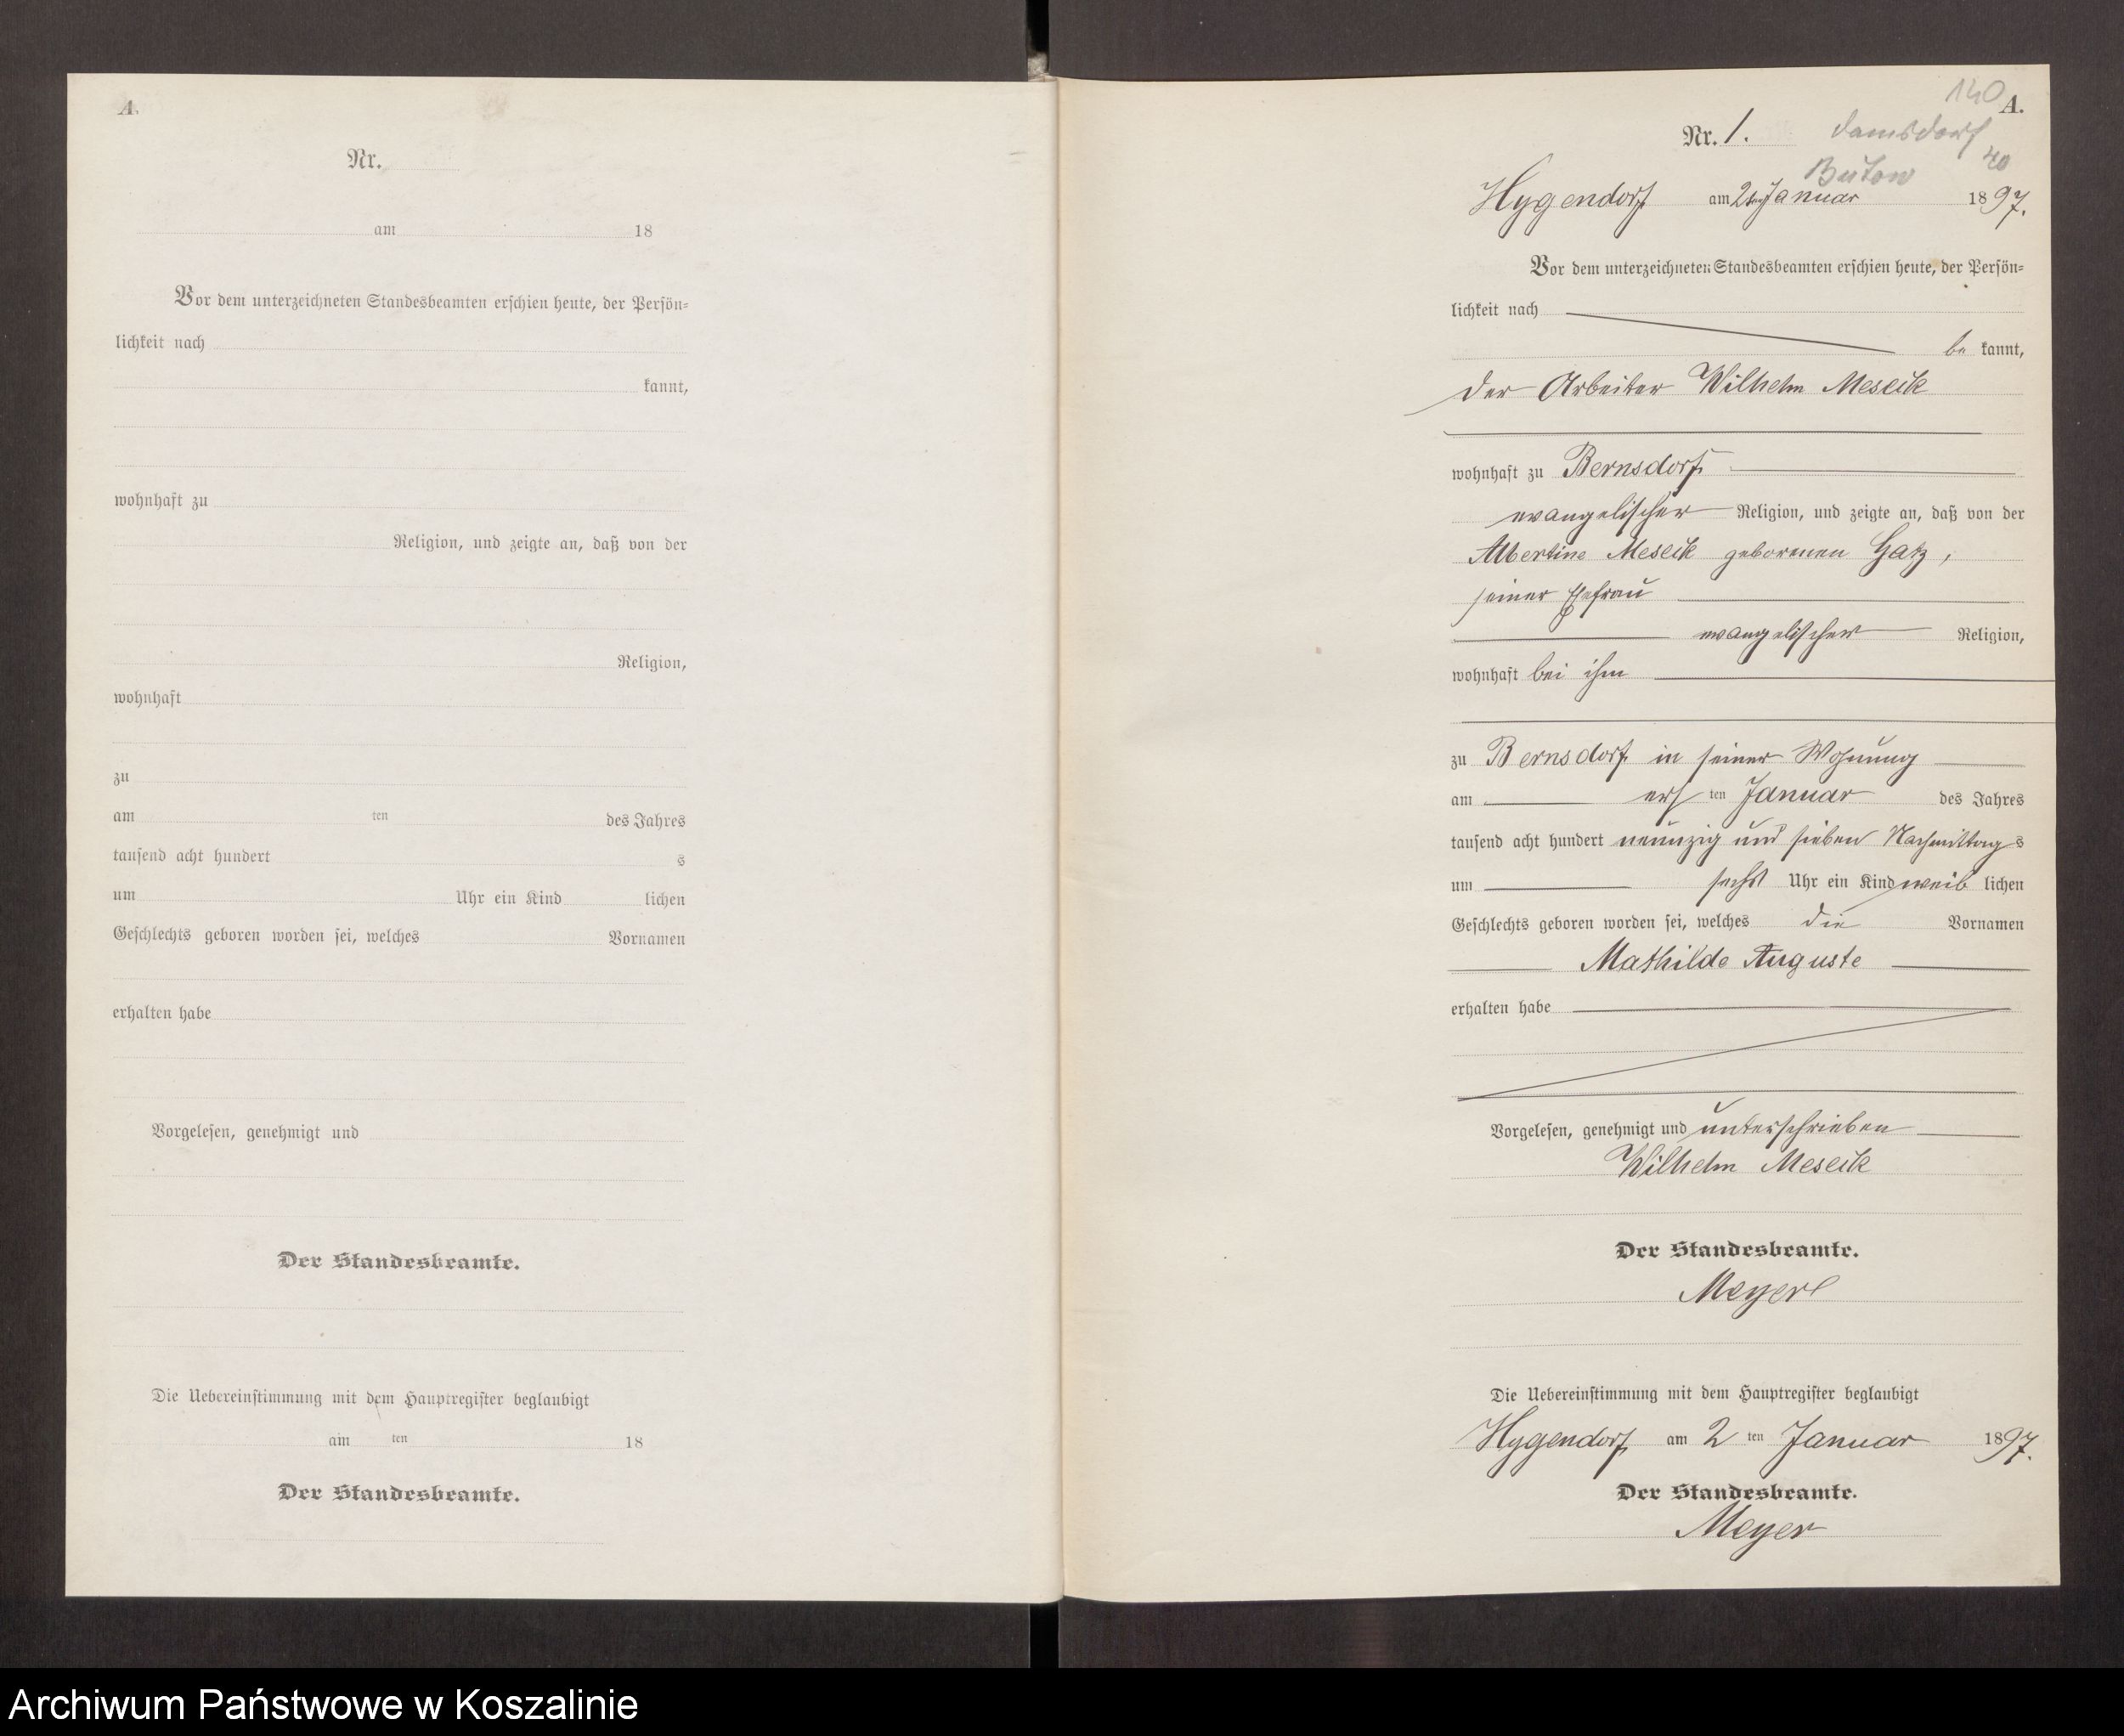 A.
Nr.
am 18
Vor dem unterzeichneten Standesbeamten erschien heute, der Persön=
lichkeit nach
kannt,
wohnhaft zu
Religion, und zeigte an, daß von der
Religion,
wohnhaft
zu
am ten des Jahres
tausend acht hundert s
um Uhr ein Kind lichen
Geschlechts geboren worden sei, welches Vornamen
erhalten habe
Vorgelesen, genehmigt und
Der Standesbeamte.
Die Uebereinstimmung mit dem Hauptregister beglaubigt
am ten 18
Der Standesbeamte.
140
A.
Nr. 1. Damsdorf
40
Bütow
Hygendorf am 2ten Januar 1897.
Vor dem unterzeichneten Standesbeamten erschien heute, der Persön=
lichkeit nach
be kannt,
der Arbeiter Wilhelm Meseik
wohnhaft zu Bernsdorf
evangelischer Religion, und zeigte an, daß von der
Albertine Meseik geborenen Gatz,
seiner Ehefrau
evangelischer Religion,
wohnhaft bei ihm
zu Bernsdorf in seiner Wohnung
am ers ten Januar des Jahres
tausend acht hundert neunzig und sieben Nachmittag s
um sechs Uhr ein Kind weib lichen
Geschlechts geboren worden sei, welches die Vornamen
Mathilde Auguste
erhalten habe
Vorgelesen, genehmigt und unterschrieben
Wilhelm Meseik
Der Standesbeamte.
Meyer
Die Uebereinstimmung mit dem Hauptregister beglaubigt
Hygendorf am 2 ten Januar 1897.
Der Standesbeamte.
Meyer
Archiwum Państwowe w Koszalinie